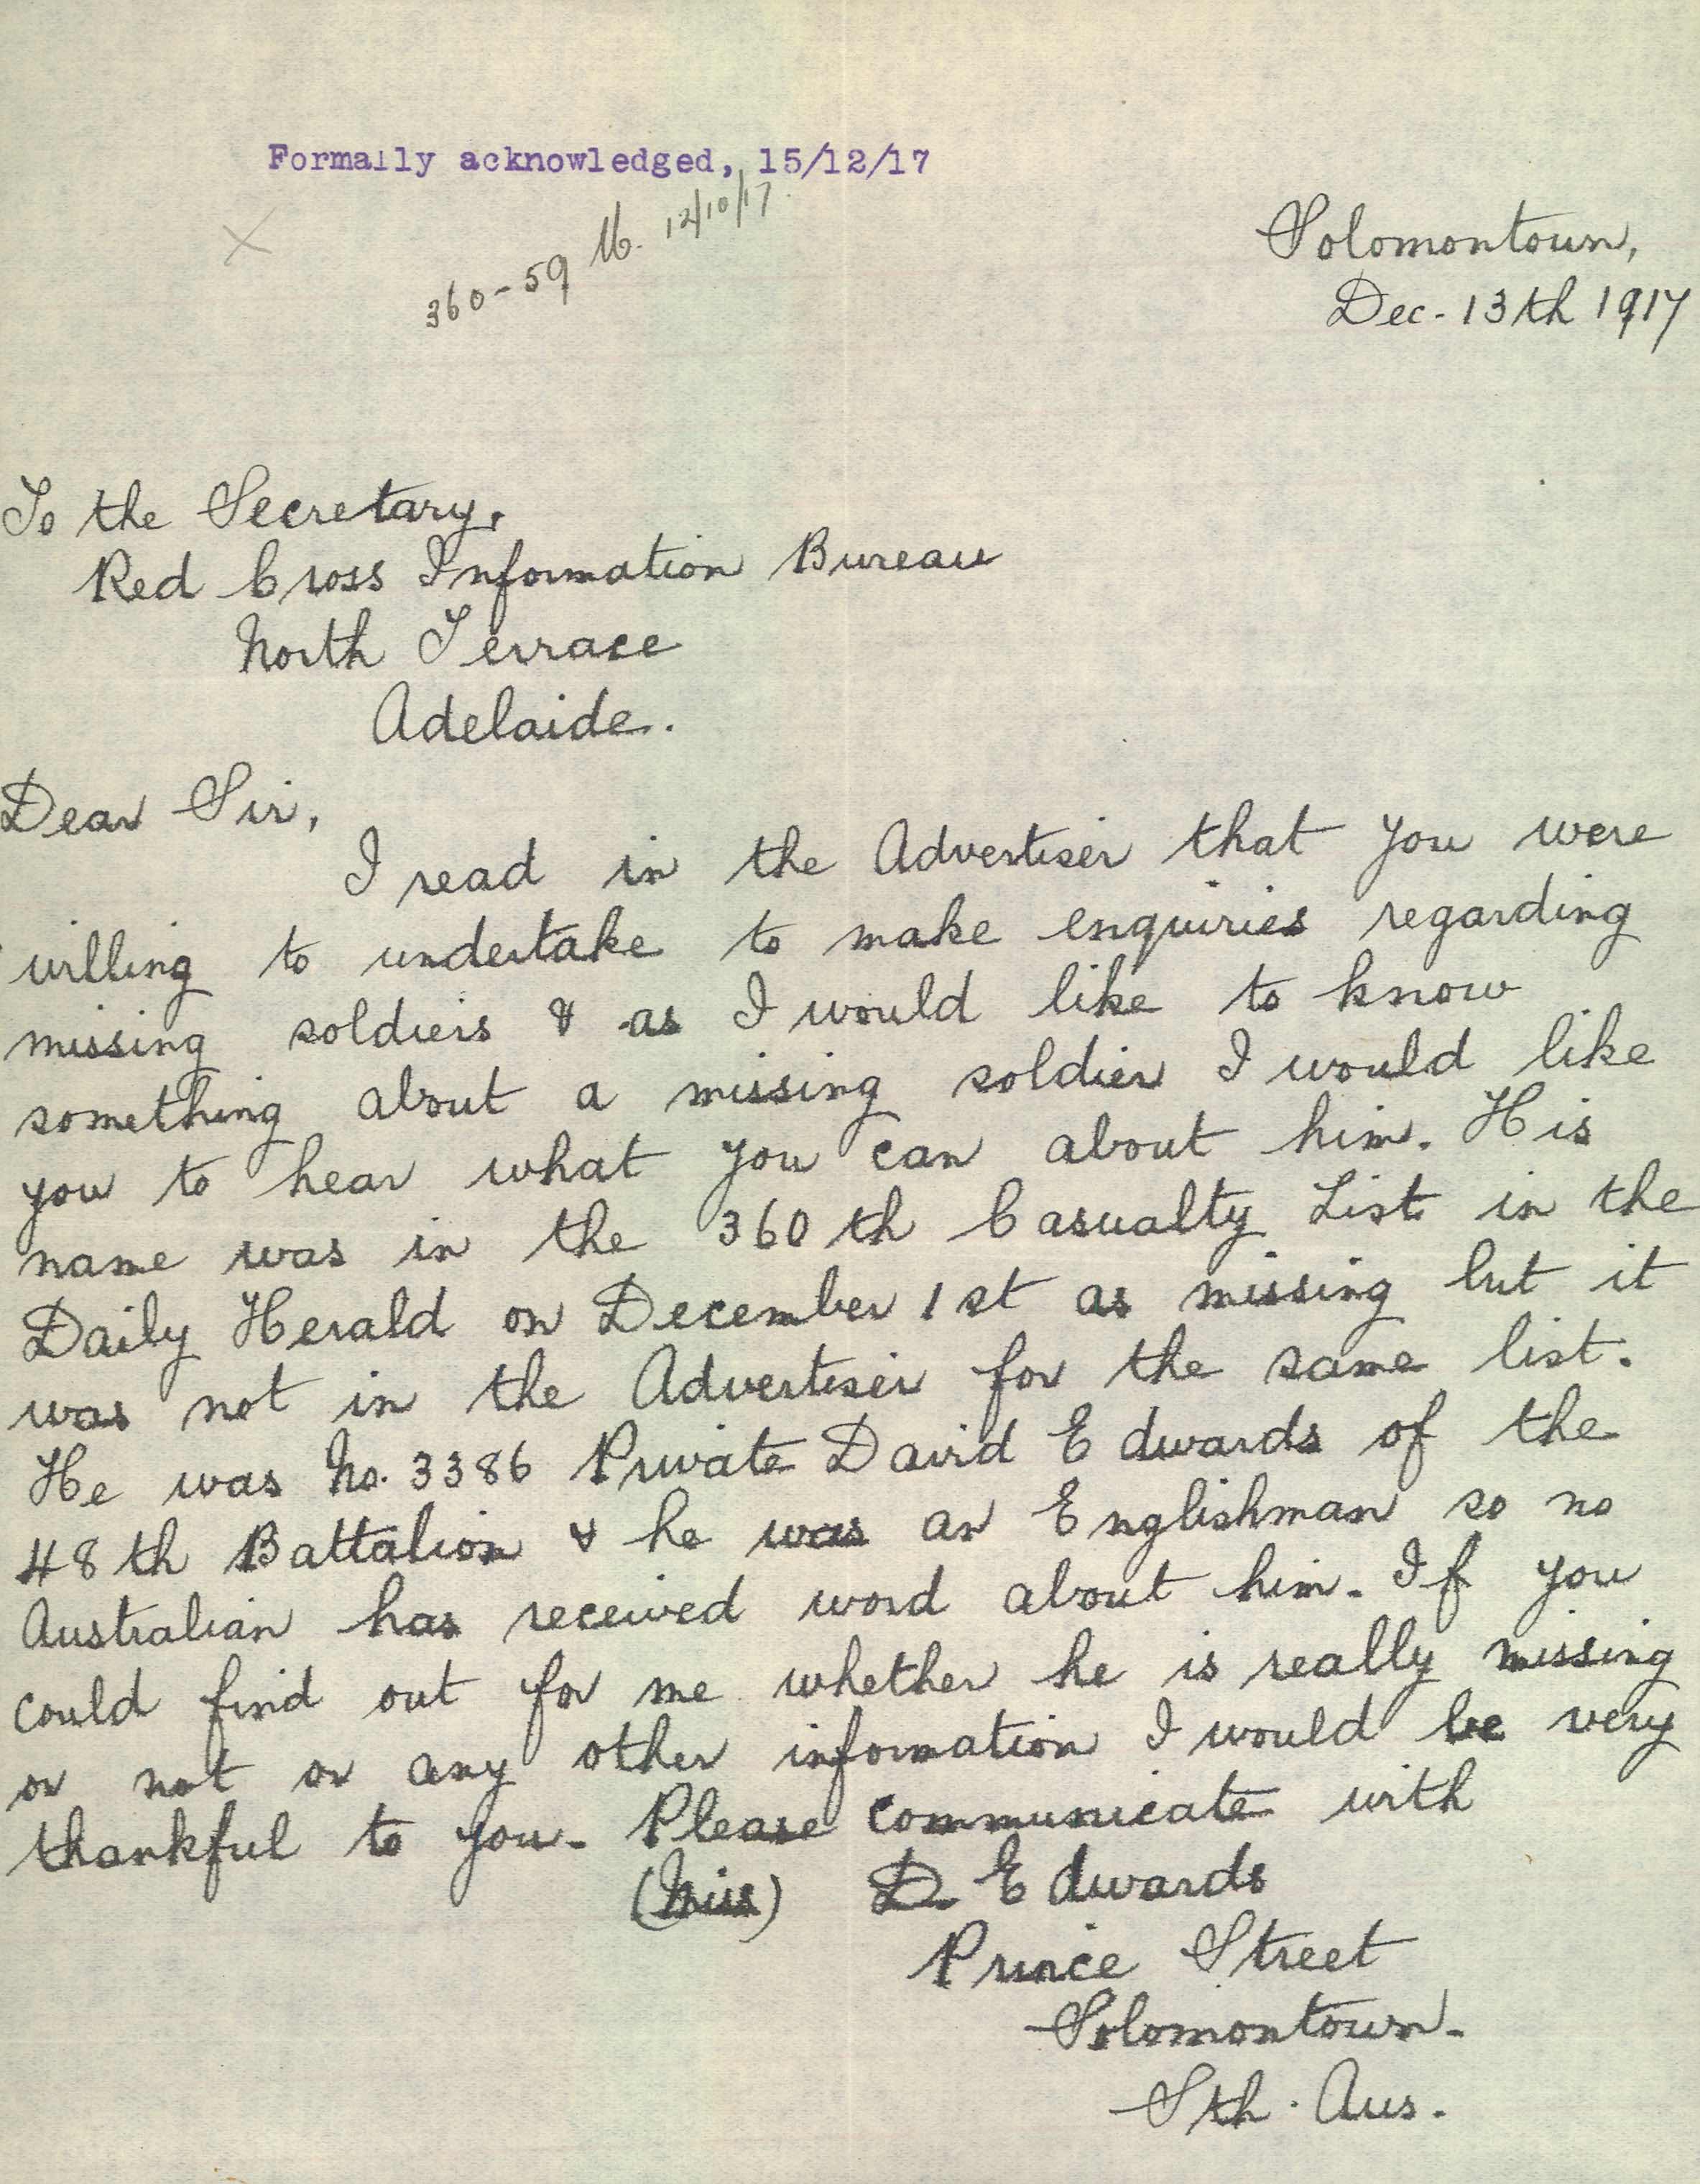 Formally acknowledged, 15/12/17
360-59 M. 12/10/17.
Solomontown,
Dec. 13th 1917
To the Secretary,
Red Cross Information Bureau
North Terrace
Adelaide.
Dear Sir,
I read in the Advertiser that you were
willing to undertake to make enquiries regarding
missing soldiers & as I would like to know
something about a missing soldier I would like
you to hear what you can about him. His
name was in the 360th Casualty List in the
Daily Herald on December 1st as missing but it
was not in the Advertiser for the same list.
He was No. 3386 Private David Edwards of the
48th Battalion & he was an Englishman so no
Australian has received word about him. If you
could find out for me whether he is really missing
or not or any other information I would be very
thankful to you. Please communicate with
(Miss) D. Edwards
Prince Street
Solomontown.
Sth. Aus.